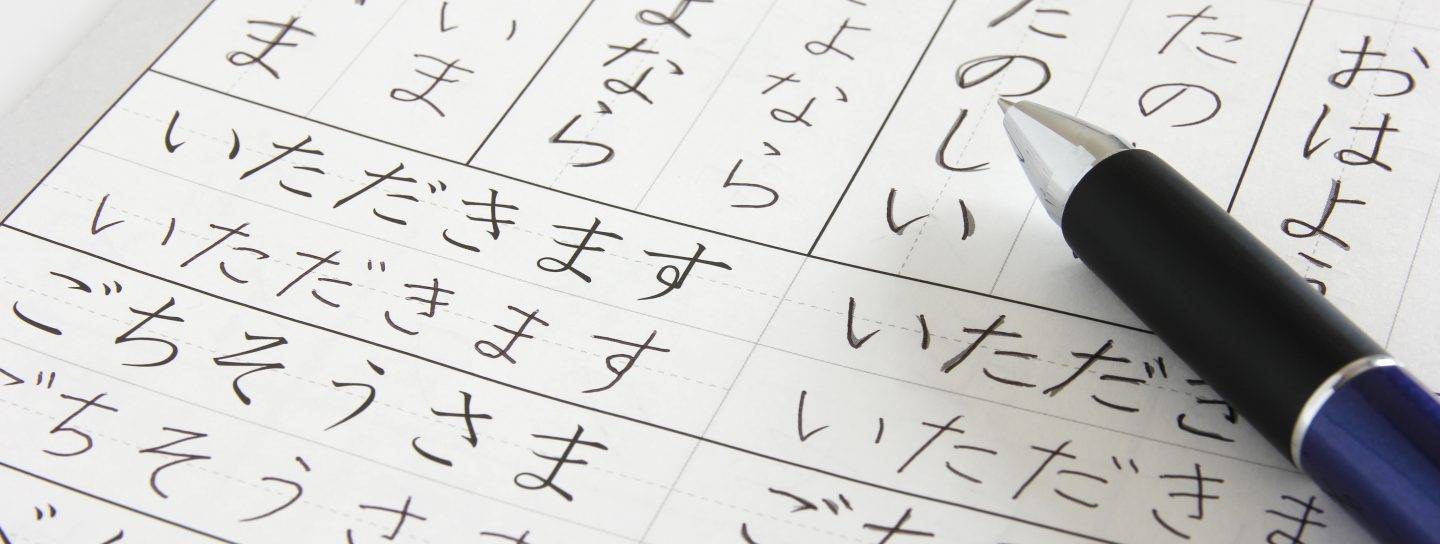 おはよう
たの
たのしい
よなら
よなら
いま
ま
いただきます
いただきます
ごちそうさま
ごちそうさ
いただき
いただきま
ご